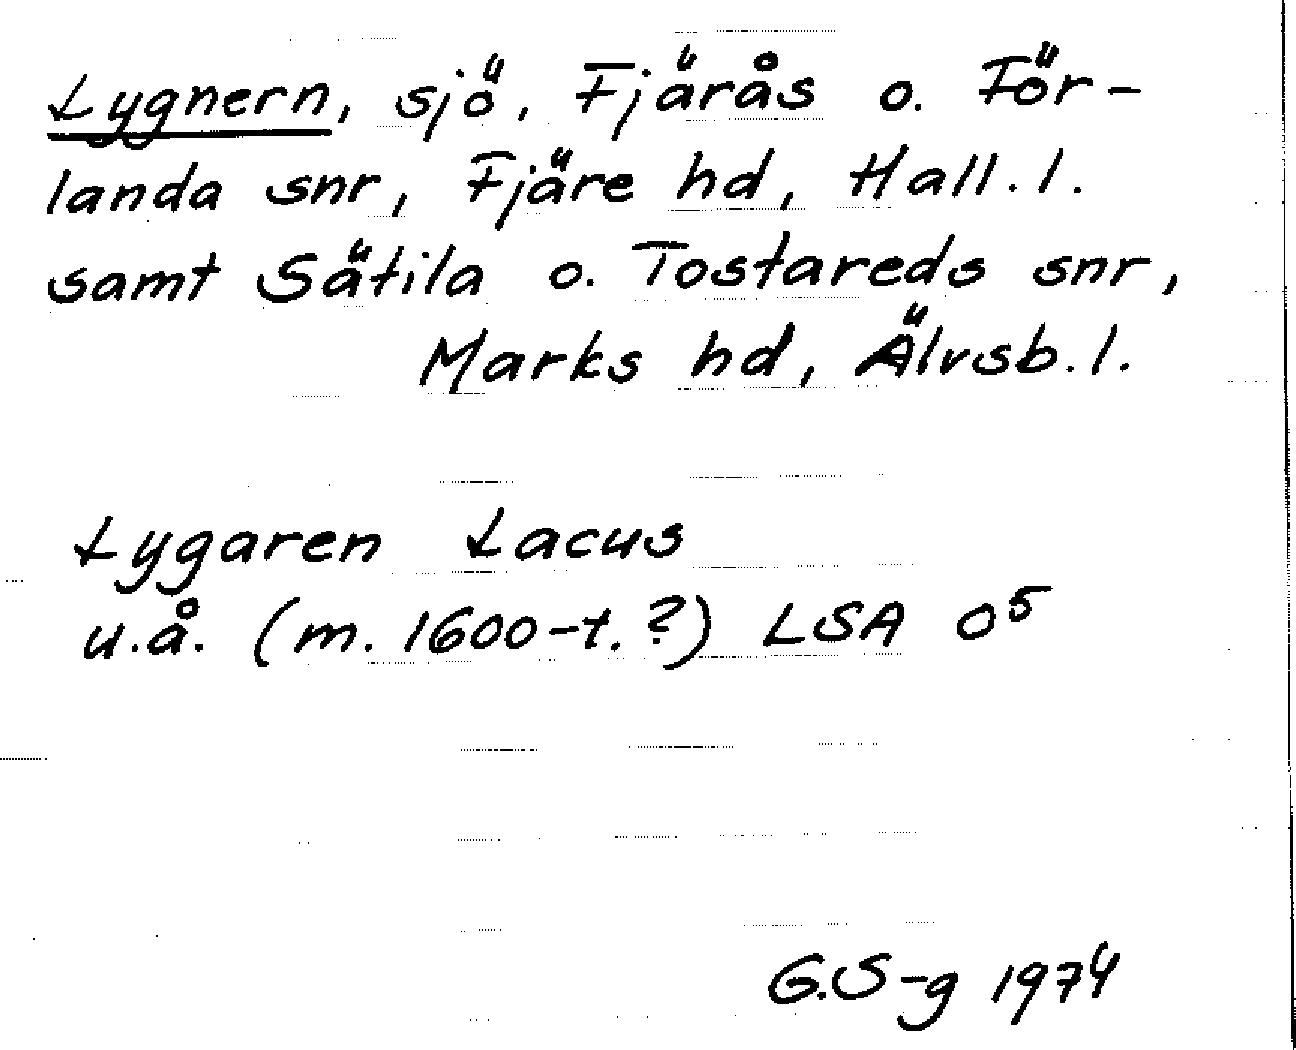 Lygnern, sjö, Fjärås o. För-
landa snr, Fjäre hd, Hall. l.
samt Sätila o. Tostareds snr,
Marks hd, Älvsb. l.
Lygaren Lacus
u.å. (m. 1600-t.?) LSA O⁵
G.S-g 1974